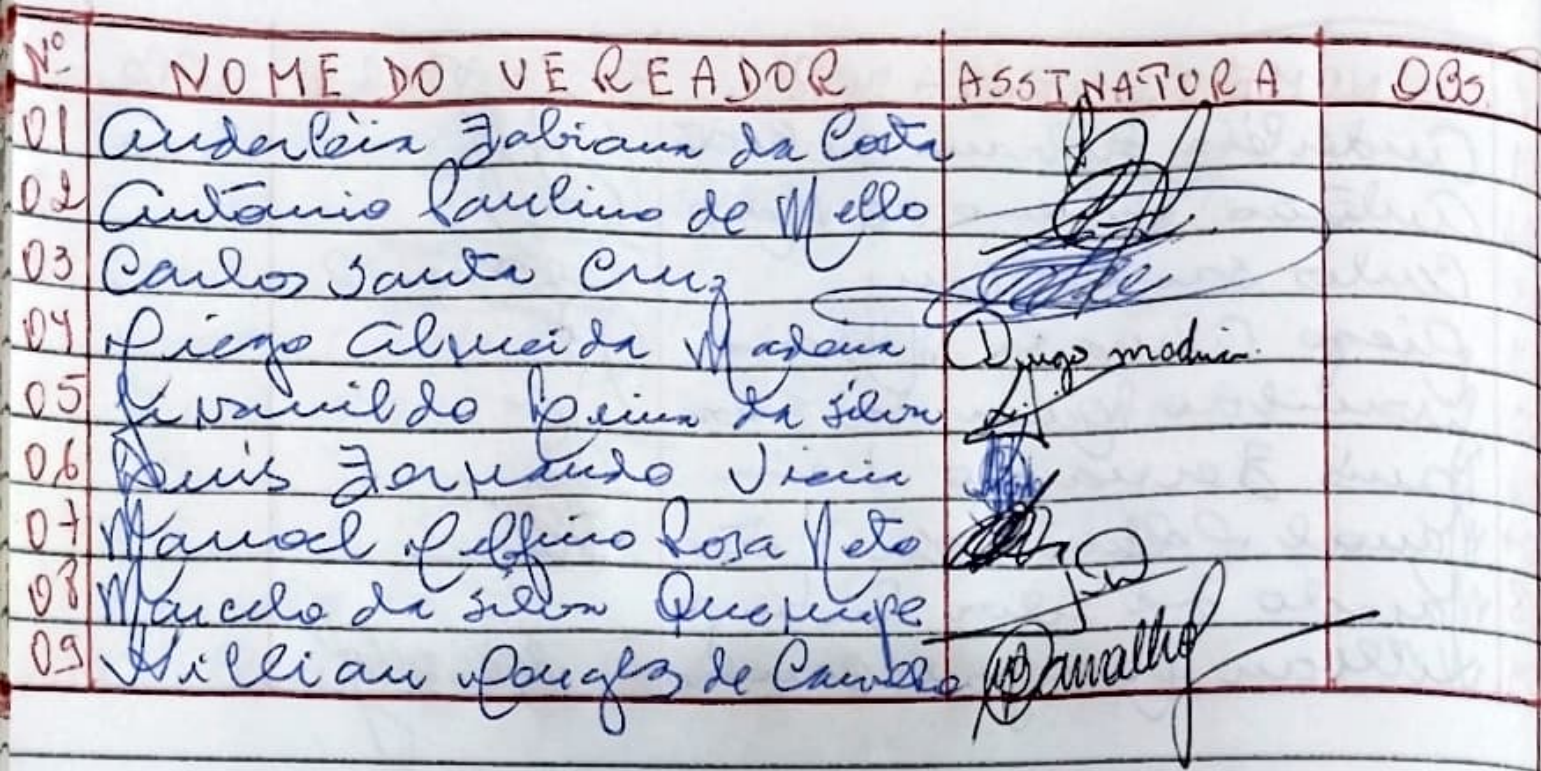 Nº NOME DO VEREADOR ASSINATURA OBS.
01 Anderléia Fabiana da Costa
02 Antônio Paulino de Mello
03 Carlos Santa Cruz
04 Diego Almeida Madeira Diego madeira
05 da Silva
06 Luís Fernando Vieira
07 Manoel Delfino Rosa Neto
08 Marcelo da Silva
09 Willian Douglas de Carvalho Carvalho